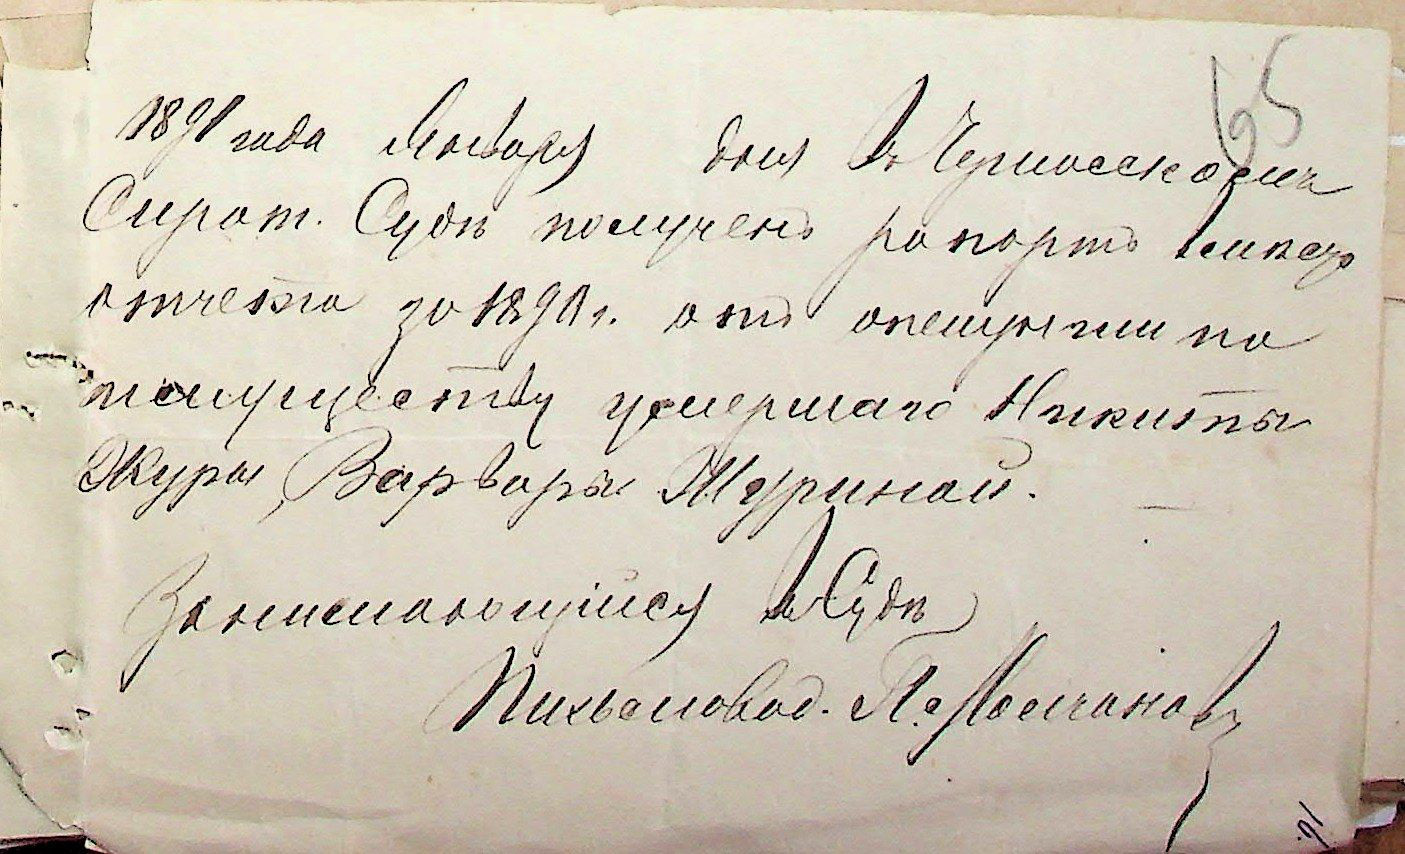 65
1891 года Января дня въ Черкасскомъ
Сирот. Судѣ полученъ рапортъ
отчета за 1890 г. отъ опекунши по
имуществу умершаго Никиты
Журы, Варвары Журиной.
Занимающійся въ Судѣ
Письмовод. П. Молчановъ